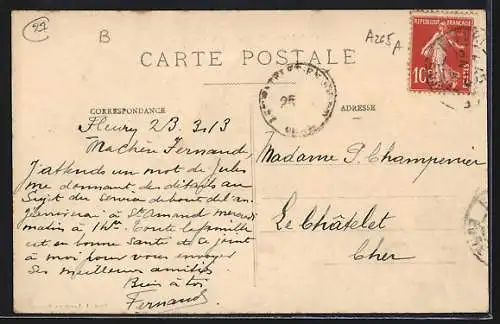 22
B
A265A
CARTE POSTALE
REPUBLIQUE FRANÇAISE
10
CORRESPONDANCE
ADRESSE
Fleury 2B. 3. 13
Ma chère Fernande,
J'attends un mot de Jules
me donnant des détails au
Sujet du service de bout de l'an
J'arriverai à St Amand mercredi
matin à 1h. Toute la famille
est en bonne santé se joint
à moi pour vous envoyer
Ses meilleures amitiés
Bien à toi
Fernand
Madame P. Champenier
Le Châtelet
Cher